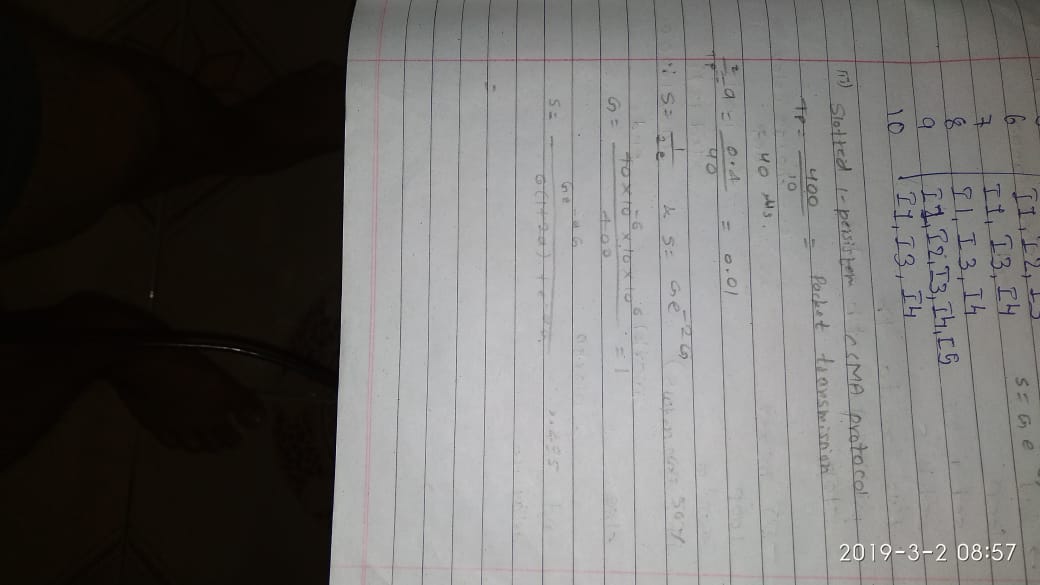 6 I1, I2, I3
7 I1, I3, I4
8 I1, I3, I4
9 I1, I2, I3, I4, I5
10 I1, I3, I4
S = G e
iii) Slotted 1-persistem CSMA protocol
TP = 400 / 10 = Packet transmission
= 40 Ms.
a = 0.4 / 40 = 0.01
S = 1 / 2e & S = G e^-2G
G = 40 × 10^-6 × 10 × 10^6 / 400 = 1
S = G e^-aG / G(1+2a) + e^-aG
2019-3-2 08:57